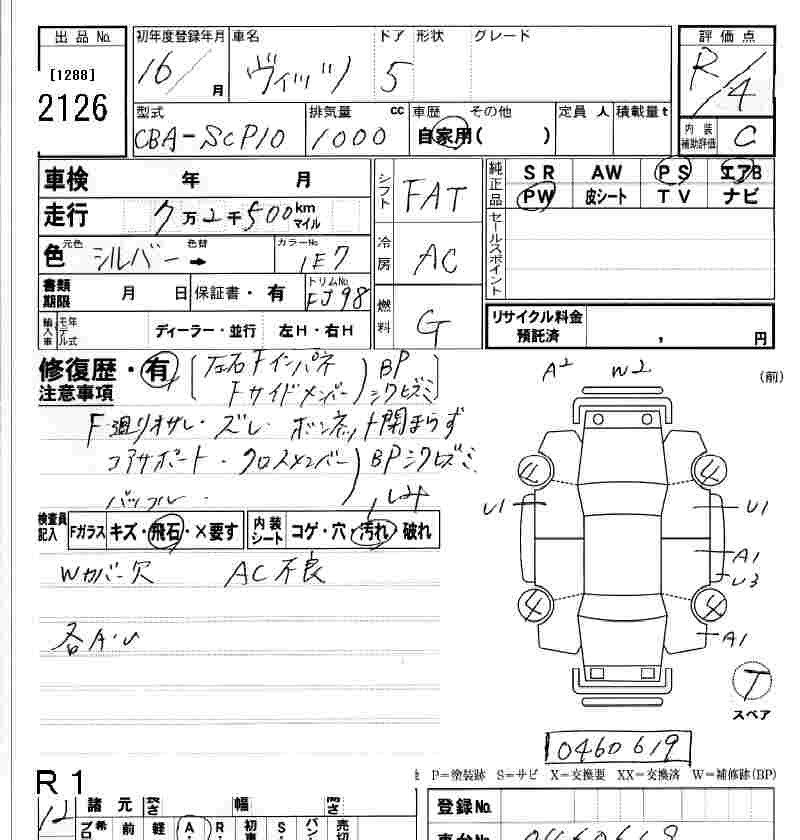 出品No. 初年度登録年月 車名 ドア 形状 グレード 評価点
[1288] 16/ 月 ヴィッツ 5 R/4
2126
型式 排気量 cc 車歴 その他 定員 人 積載量t 内装補助評価
CBA-SCP10 1000 自家用( ) C
車検 年 月 シフト FAT 純正品 SR AW PS エアB
PW 皮シート TV ナビ
走行 7万2千500km マイル
色 元色 シルバー 色替 → カラーNo 1E7 冷房 AC セールスポイント
書類期限 月 日 保証書・有 トリムNo FJ98 燃料 G
輸入車 モデル年式 ディーラー・並行 左H・右H リサイクル料金預託済 , 円
修復歴・有 左右Fインパネ BP
注意事項 Fサイドメンバー シワヒズミ
A2 W2 (前)
F廻りオサレ・ズレ ボンネット閉まらず
コアサポート・クロスメンバー BPシワヒズミ
バッフル しみ
検査員記入 Fガラス キズ・飛石・×要す 内装シート コゲ・穴・汚れ・破れ
Wカバー欠 AC不良
各A・U
4 4
U1 U1
A1
U3
4 4
A1
T
スペア
0460619
R1 P=塗装跡 S=サビ X=交換要 XX=交換済 W=補修跡(BP)
諸元 長さ 幅 高さ 登録No.
12 前 軽 A・ R・ 初 S・ パン 売切
車台No. 0460619